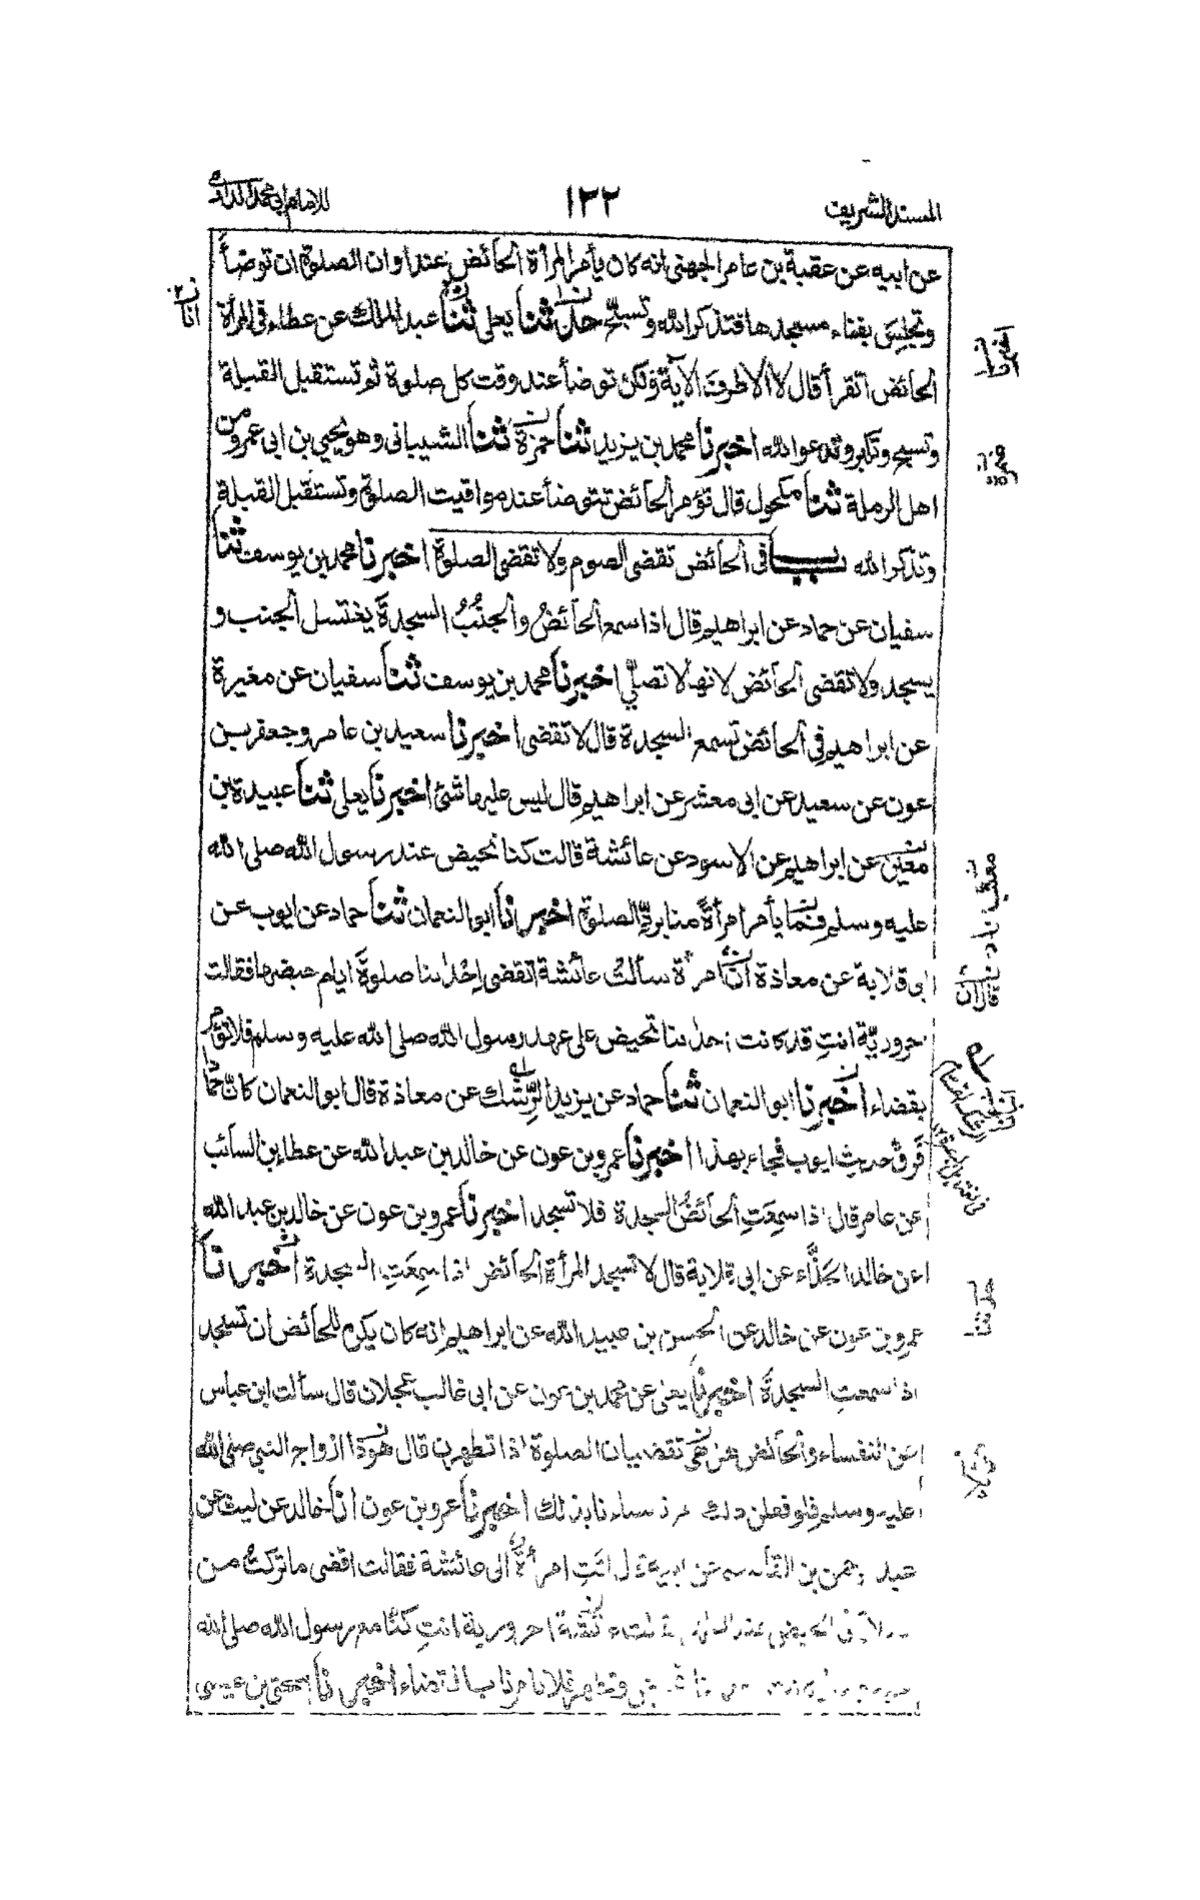 المسند الشريف
١٣٢
للامام ابي محمد الدارمي
عن ابيه عن عقبة بن عامر الجهنى انه كان يأمر المرأة الحائض عند اوان الصلوة ان توضأ
وتجلس بفناء مسجدها فتذكر الله وتسبح حدثنا يعلى ثنا عبد الملك عن عطاء فى المرأة
الحائض اتقرأ قال لا الا طرف الآية ولكن توضأ عند وقت كل صلوة ثم تستقبل القبلة
وتسبح وتكبر وتدعو الله اخبرنا محمد بن يزيد ثنا حمزة ثنا الشيبانى وهو يحيى بن ابى عمرو من
اهل الرملة ثنا مكحول قال تؤمر الحائض تتوضأ عند مواقيت الصلوة وتستقبل القبلة
وتذكر الله باب فى الحائض تقضى الصوم ولا تقضى الصلوة اخبرنا محمد بن يوسف ثنا
سفيان عن حماد عن ابراهيم قال اذا سمع الحائضُ والجنُبُ السجدةَ يغتسل الجنب و
يسجد ولا تقضى الحائض لانها لا تصلّى اخبرنا محمد بن يوسف ثنا سفيان عن مغيرة
عن ابراهيم فى الحائض تسمع السجدة قال لا تقضى اخبرنا سعيد بن عامر وجعفر بن
عون عن سعيد عن ابى معشر عن ابراهيم قال ليس عليها شئ اخبرنا يعلى ثنا عبيدة بن
معين عن ابراهيم عن الاسود عن عائشة قالت كنا نحيض عند رسول الله صلى الله
عليه وسلم فما يأمر امرأةً منا بردّ الصلوة اخبرنا ابو النعمان ثنا حماد عن ايوب عن
ابى قلابة عن معاذة ان امرأة سألت عائشة اتقضى احدانا صلوةَ ايام حيضها فقالت
حروريّة انتِ قد كانت احدانا تحيض على عهد رسول الله صلى الله عليه وسلم فلا تؤمر
بقضاء اخبرنا ابو النعمان ثنا حماد عن يزيد الرِّشك عن معاذة قال ابو النعمان كانّ حمّادا
فَرِق حديث ايوب فجاء بهذا اخبرنا عمرو بن عون عن خالد بن عبد الله عن عطاء بن السائب
عن عامر قال اذا سمِعَتِ الحائضُ السجدة فلا تسجد اخبرنا عمرو بن عون عن خالد بن عبد الله
عن خالد الحذّاء عن ابى قلابة قال لا تسجد المرأة الحائض اذا سمِعَتِ السجدة اخبرنا
عمرو بن عون عن خالد عن الحسن بن عبيد الله عن ابراهيم انه كان يكره للحائض ان تسجد
اذا سمعتِ السجدةَ اخبرنا يعلى عن محمد بن عون عن ابى غالب عجلان قال سألت ابن عباس
عن النفساء والحائض هل تقضيان الصلوة اذا تطهرن قال هو ذا ازواج النبى صلى الله
عليه وسلم فلو فعلن ذلك امرنا نساءنا بذلك اخبرنا عمرو بن عون انا خالد عن ليث عن
عبد الرحمن بن القاسم عن ابيه قال اتتِ امرأة الى عائشة فقالت اقضى ما تركتُ من
فى الحيض عند احرورية انتِ كنّا مع رسول الله صلى الله
فلا يامرنا بالقضاء اخبرنا بن عيسى